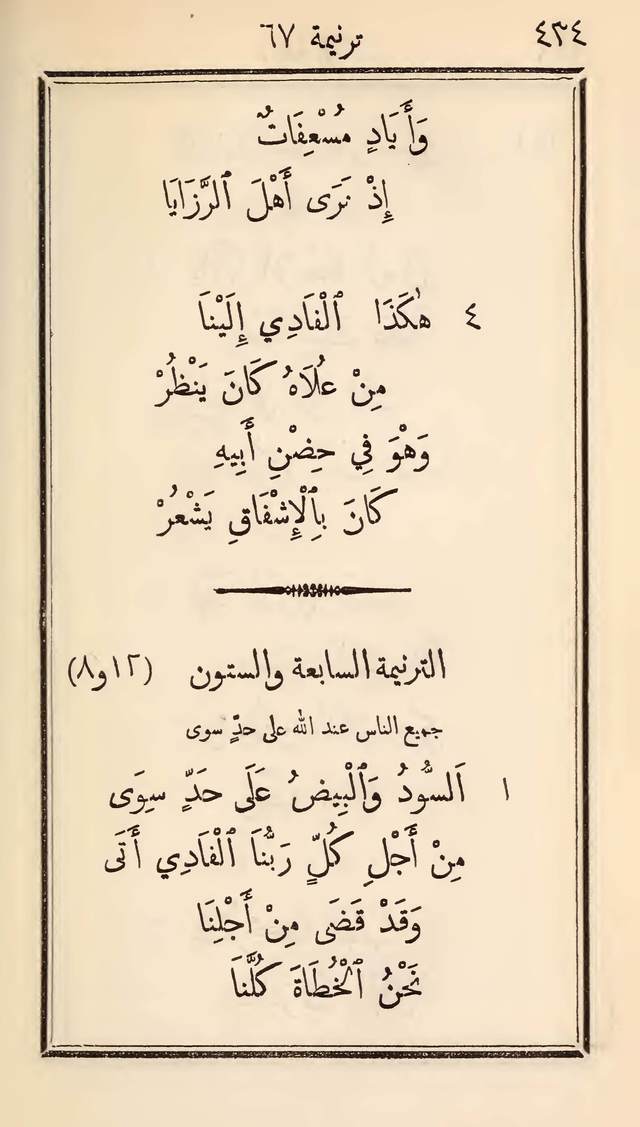 ٤٣٤ ترنيمة ٦٧
وَأَيَادٍ مُسْعِفَاتٌ
إِذْ نَرَى أَهْلَ ٱلرَّزَايَا
٤ هٰكَذَا ٱلْفَادِي إِلَيْنَا
مِنْ عُلَاهُ كَانَ يَنْظُرْ
وَهْوَ فِي حِضْنِ أَبِيهِ
كَانَ بِٱلْإِشْفَاقِ يَشْعُرْ
الترنيمة السابعة والستون (١٢ و٨)
جميع الناس عند الله على حدٍّ سوى
١ اَلسُّودُ وَٱلْبِيضُ عَلَى حَدٍّ سِوَى
مِنْ أَجْلِ كُلٍّ رَبُّنَا ٱلْفَادِي أَتَى
وَقَدْ قَضَى مِنْ أَجْلِنَا
نَحْنُ ٱلْخُطَاةَ كُلَّنَا